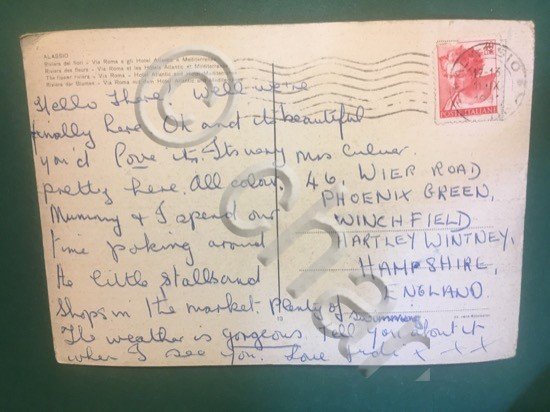 ALASSIO
Riviera dei fiori - Via Roma e gli Hotel Atlantic e Mediterranée
Riviera des fleurs - Via Roma et les Hotels Atlantic et Méditerranée
The flower riviera - Via Roma - Hotel Atlantic and Hotel Mediterranée
Riviera der Blumen - Via Roma und Hotel Atlantic
POSTE ITALIANE
Hello There. Well we're
finally here. Oh and its beautiful
you'd love it. Its very
pretty here. All colour.
Mummy & I spend our
time poking around
the little stalls and
shops in the market. Plenty of swimming
The weather is gorgeous. Tell you about it
when I see you. Love x x x
Mrs Culver
46, WIER ROAD
PHOENIX GREEN,
WINCHFIELD
HARTLEY WINTNEY,
HAMPSHIRE,
ENGLAND.
© char